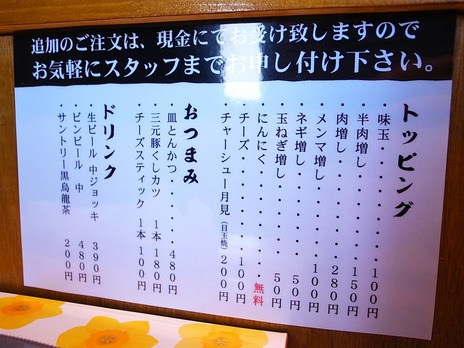 追加のご注文は、現金にてお受け致しますので
お気軽にスタッフまでお申し付け下さい。
トッピング
・味玉・・・・・・・・・100円
・半肉増し・・・・・・150円
・肉増し・・・・・・・280円
・メンマ増し・・・・100円
・ネギ増し・・・・・・50円
・玉ねぎ増し・・・・50円
・にんにく・・・・・・無料
・チーズ・・・・・・100円
・チャーシュー月見(目玉焼)200円
おつまみ
・皿とんかつ・・・・・480円
・三元豚くしカツ 1本180円
・チーズスティック 1本100円
ドリンク
・生ビール 中ジョッキ 390円
・ビンビール 中 480円
・サントリー黒烏龍茶 200円